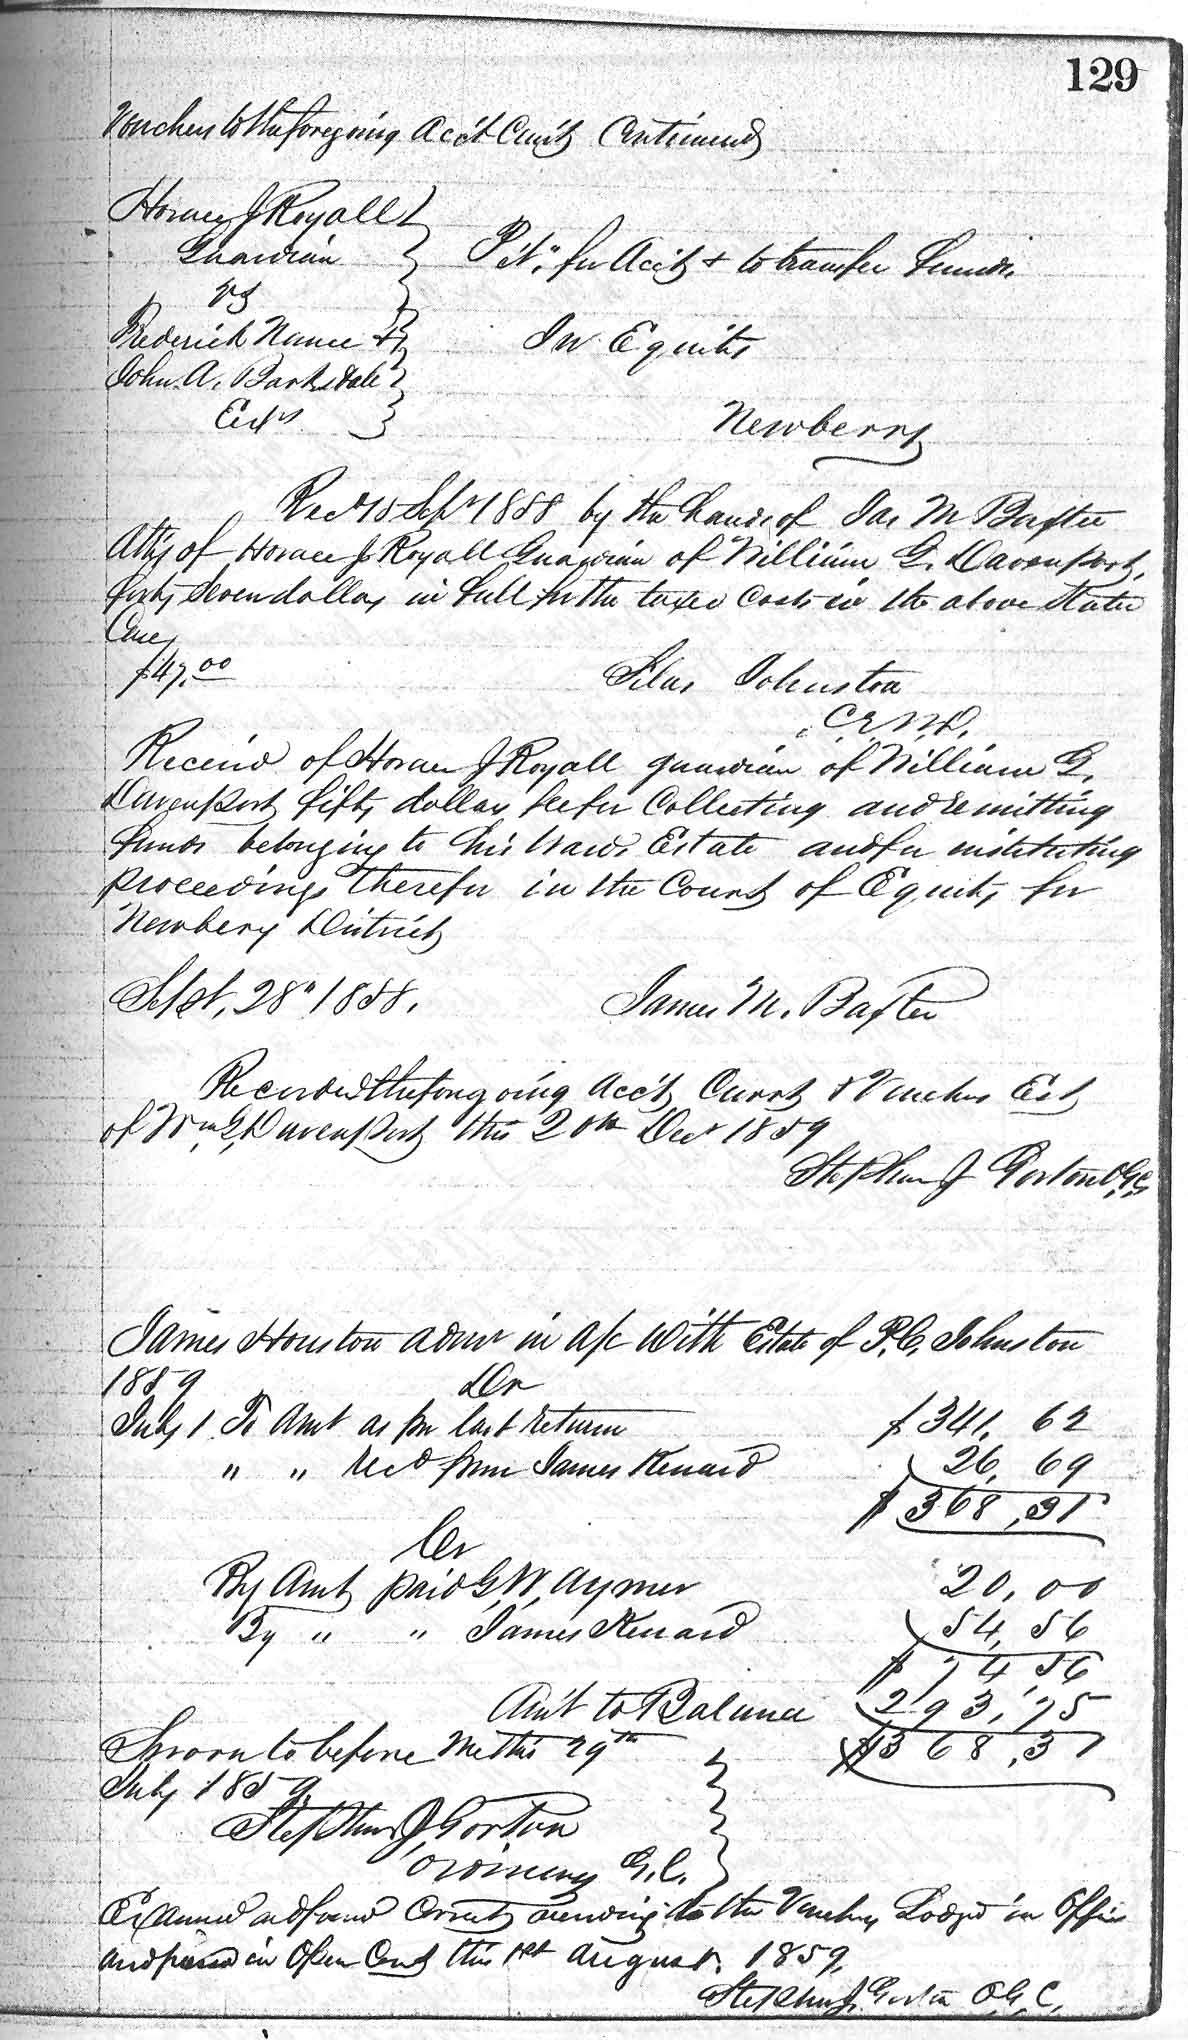 129
Vouchers to the foregoing Acc't Curr't Continued
Horace J Royall
Guardian
vs
Frederick Nance &
John. A. Barksdale
Exd'rs
Pet'n. for Acc't & to transfer Funds.
In Equity
Newberry
Rec'd 10 Sept 1858 by the hands of Jas M Baxter
Atty of Horace J Royall Guardian of William G. Davenport,
forty seven dollars in full for the taxed Costs in the above Stated
Case
$47.00
Silas Johnston
C.E.N.D.
Received of Horace J Royall guardian of William G.
Davenport fifty dollars fee for Collecting and remitting
funds belonging to his Wards Estate and for instituting
proceedings therefor in the Court of Equity for
Newbery District
Sept, 28" 1858.
James M. Baxter
Recorded the foregoing Acc't Curr't & Vouchers Est
of Wm. G. Davenport this 20th Decr 1859
Stephen J Gorton O.G.C.
James Houston admr in a/c With Estate of P. C. Johnston
1859 Dr
July 1 To Amt as per last return $341, 62
" " Rec'd from James Kenard 26, 69
$368, 31
Cr
By Amt paid G. W. Aymer 20, 00
By " " James Kenard 54, 56
$74 56
Am't to Balance 293, 75
$368, 31
Sworn to before Me this 29th
July 1859.
Stephen J, Gorton
Ordinary G. C.
Examined and found Correct according to the Vouchers Lodged in Office
and passed in Open Court this 1st August. 1859,
Stephen J. Gorton O. G. C.